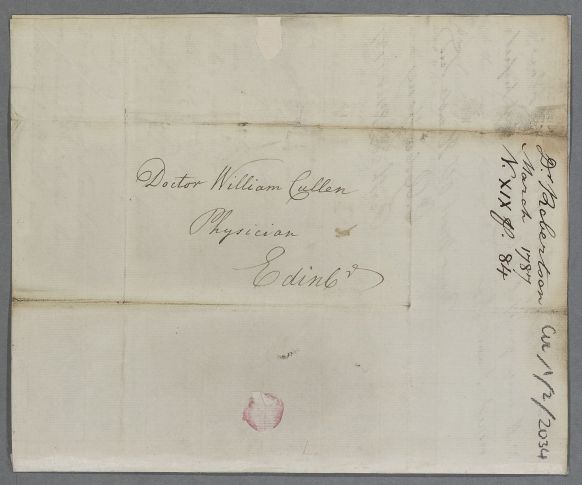 Doctor William Cullen
Physician
Edinbr
Dr. Robertson
March 1787
N. XIX p. 84
CUL/1/2/2034